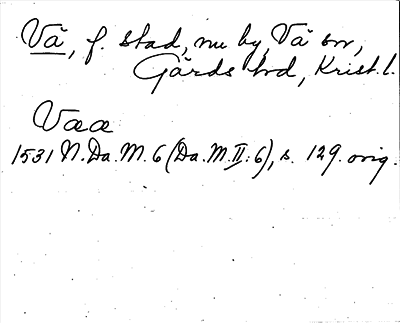 Vä, f. stad, nu by, Vä sn,
Gärds hd, Krist. l.
Vææ
1531 N. Da. M. 6 (Da. M. II: 6), s. 129. orig.